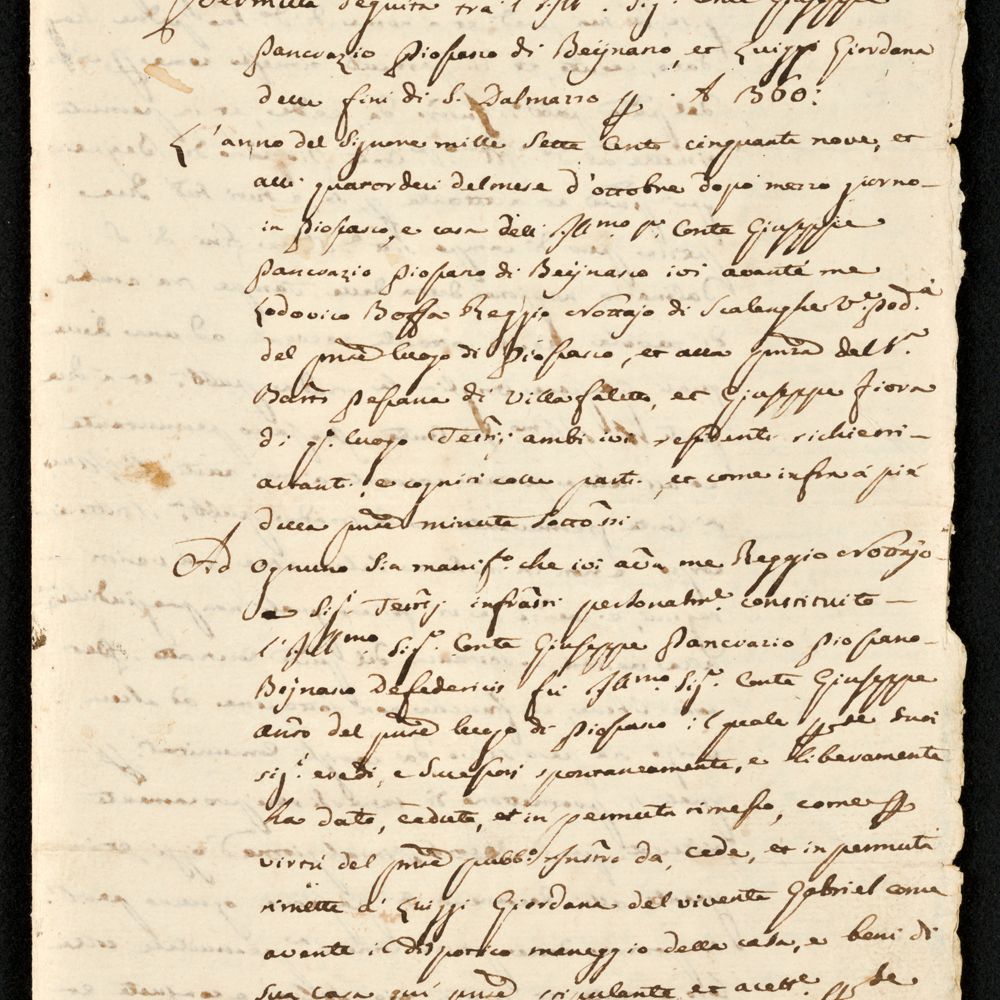 Permutta seguita tra l'Ill.mo Sig.r Conte Giuseppe
Pancrazio Piossasco di Beÿnasco, et Luiggi Giordana
delle fini di S. Dalmazzo 360:
L'anno del Signore mille sette cento cinquanta nove, et
alli quatordeci del mese d'ottobre dopo mezzo giorno
in Piossasco, e casa dell' Ill.mo Sr. Conte Giuseppe
Pancrazio Piossasco di Beÿnasco ivi avante me
Lodovico Boffa Reggio Nottajo di Scalenghe
del pnte luogo di Piossasco, et alla pnza del Sr.
Pessana di Villa faletto, et Giuseppe Fiora
di qo. luogo Testij ambi ivi residenti richiesti
astanti, e cogniti colle parti, et come infra a piè
della pnte minuta sottostti
Ad Ognuno sia manifo. che ivi avti me Reggio Nottajo
e Sigi Testij infrastti personalmte. constituito
l'Ill.mo Sigr. Conte Giuseppe Pancrazio Piossasco
Beÿnasco Defedericis fu Ill.mo Sigr. Conte Giuseppe
del pnte luogo di Piossasco il quale per se suoi
sigi. eredi, e successori spontaneamente, e liberamente
ha dato, ceduto, et in permuta rimesso, come per
virtù del pnte pubbo. Instro da, cede, et in permutta
rimette a' Luiggi Giordana del vivente Gabriel come
avente il dispotico maneggio della casa, e beni di
sua casa qui pnte stipulante et accettte. per se